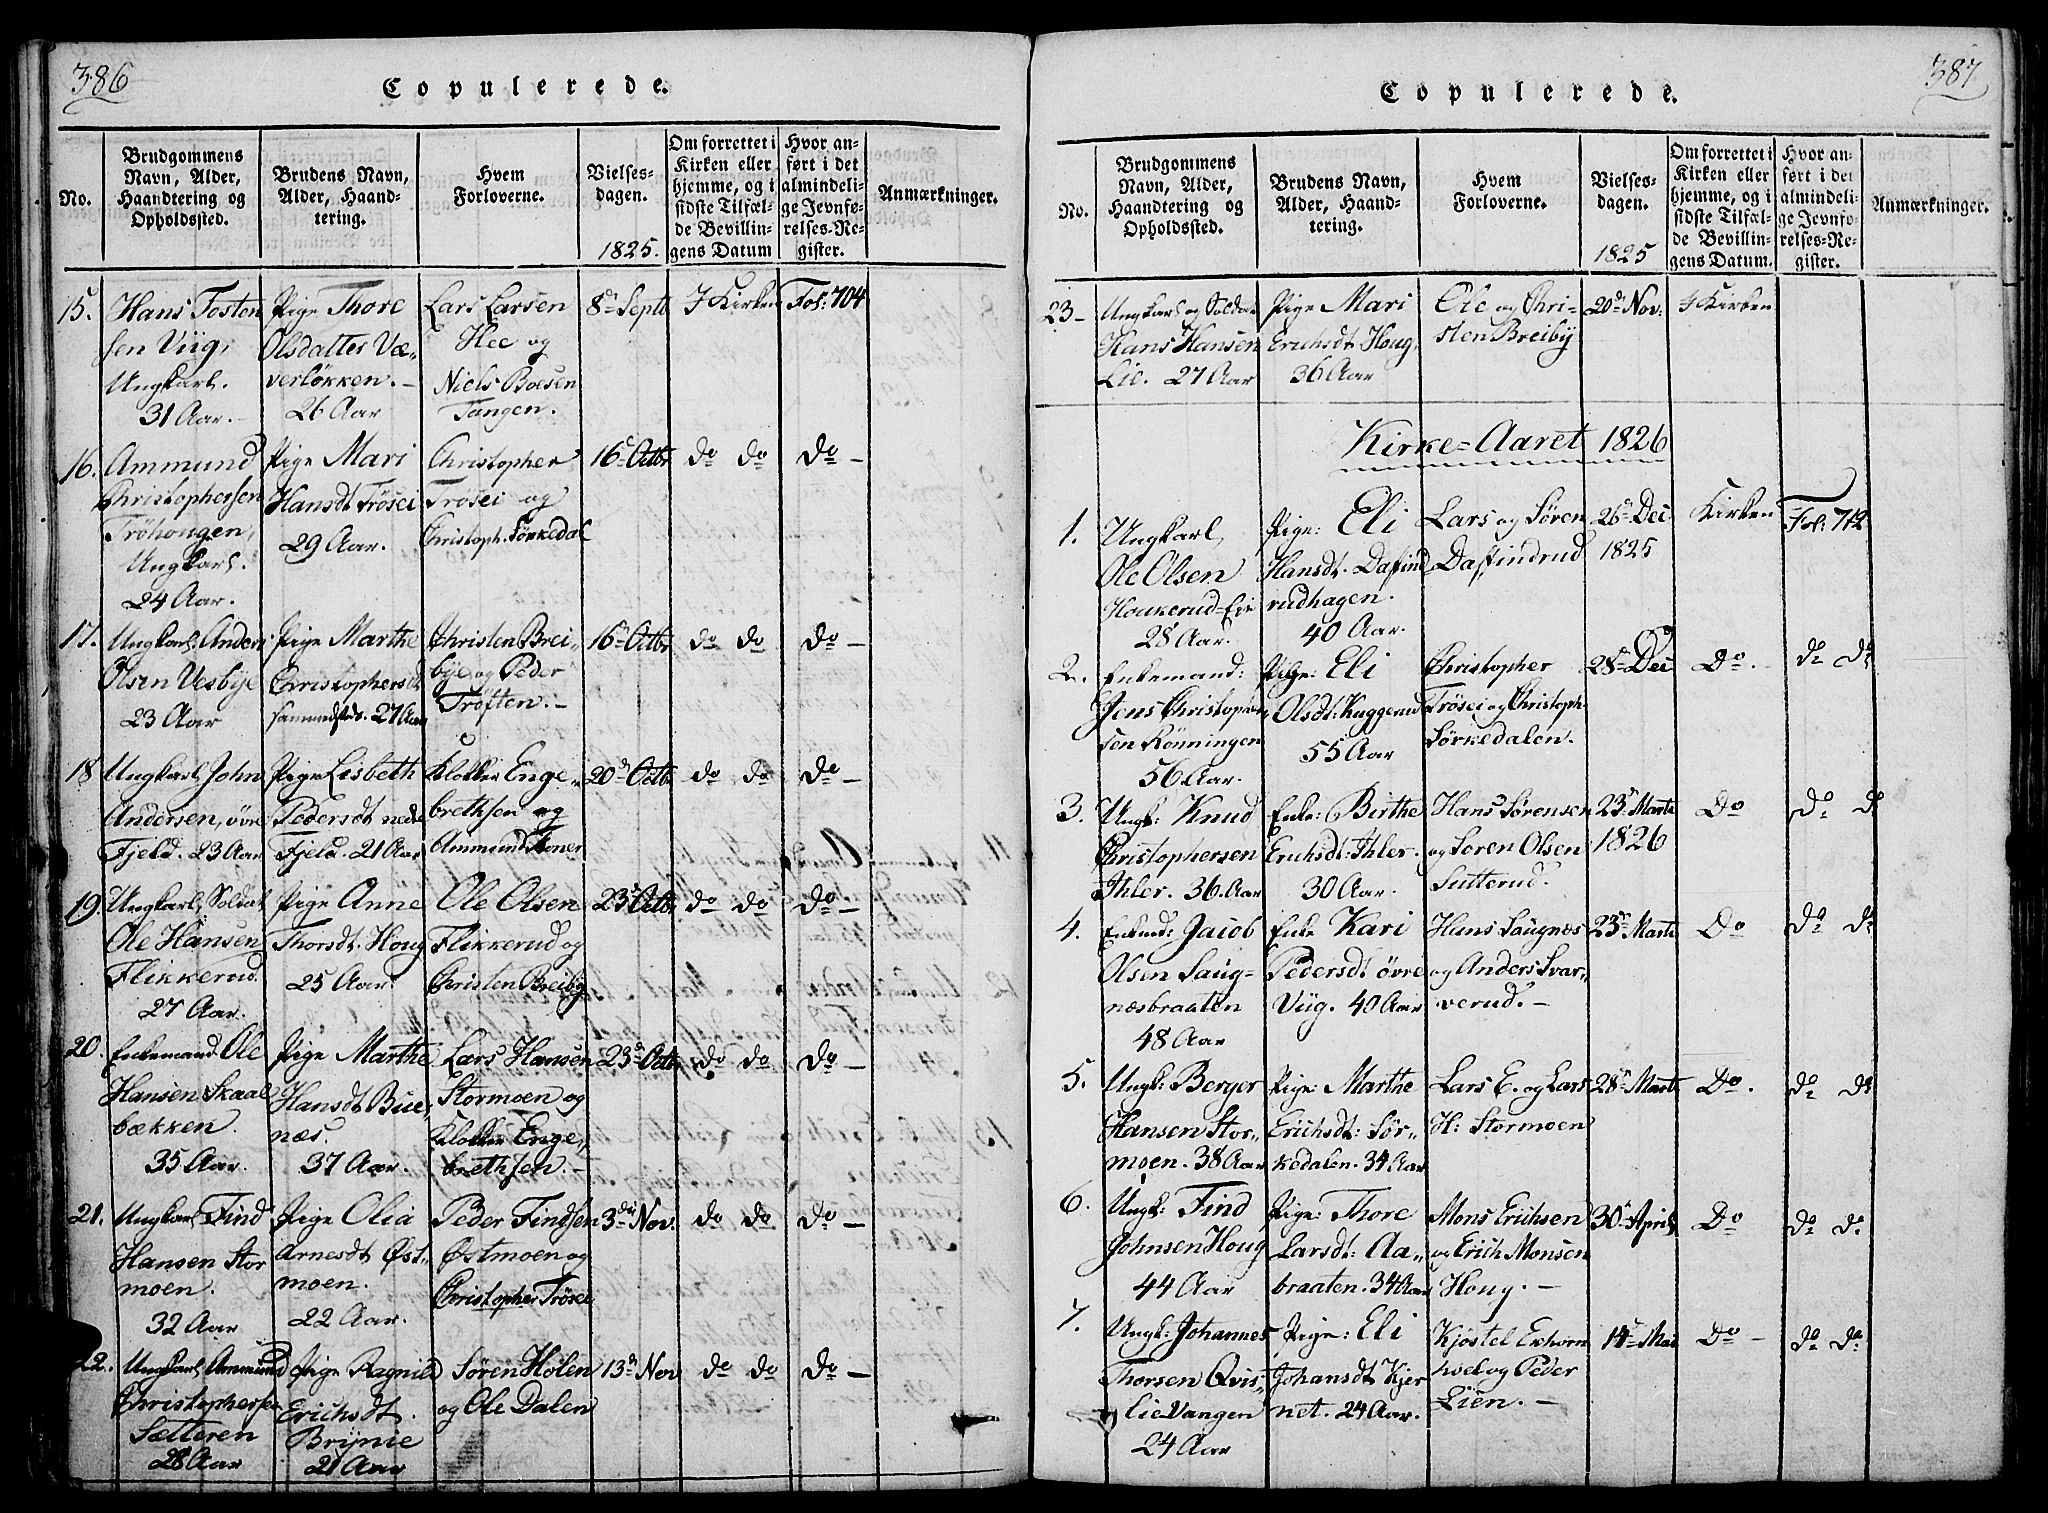 386
Copulerede.
No.
Brudgommens
Navn, Alder,
Haandtering og
Opholdssted.
Brudens Navn,
Alder, Haand-
tering.
Hvem
Forloverne.
Vielses-
dagen.
1825.
Om forrettet i
Kirken eller
hjemme, og i
sidste Tilfæl-
de Bevillin-
gens Datum
Hvor an-
ført i det
almindeli-
ge Jevnfø-
relses-Re-
gister.
Anmærkninger.
15.
Hans Tosten
sen Viig,
Ungkarl.
31 Aar.
Pige Thore
Olsdatter Væ-
verløkken.
26 Aar
Lars Larsen
Hee og
Niels Boesen
Tangen.
8de Septr
I Kirken
Fol: 704
16.
Ammund
Christophersen
Tröhongen,
Ungkarl.
24 Aar.
Pige Mari
Hansdt Trösei
29 Aar.
Christopher
Trösei og
Christoph. Sörkedal
16 Octbr
do do
do
17.
Ungkarl Anders
Olsen Vesbye
23 Aar
Pige Marthe
Christophersdt
27 Aar
Christen Brei-
bye og Peder
Troften.
16 Octbr
do do
do
18
Ungkarl John
Andersen, övre
Fjeld. 23 Aar
Pige Lisbeth
Pedersdt nedre
Fjeld. 21 Aar
Klokker Enge-
brethsen og
Ammund
20d Octbr
do do
do
19.
Ungkarl Soldat
Ole Hansen
Flikkerud.
27 Aar.
Pige Anne
Thorsdt. Houg
25 Aar.
Ole Olsen
Flikkerud og
Christen Breiby
23 Octbr
do do
do
20.
Enkemand Ole
Hansen Skaal
bækken
35 Aar.
Pige Marthe
Hansdt Bue-
næs.
37 Aar.
Lars Hansen
Stormoen og
Klokker Enge-
brethsen.
23d Octbr
do do
do
21.
Ungkarl Find
Hansen Stor
moen.
32 Aar
Pige Olia
Arnesdt Øst-
moen.
22 Aar.
Peder Findsen
Østmoen og
Christopher Trösei
3de Nov.
do do
do
22.
Ungkarl Ammund
Christophersen
Sætteren
28 Aar
Pige Ragnild
Erichsdt.
Brynie
21 Aar
Sören Holen
og Ole Dalen
13d Nov
do do
do
387
Copulerede.
No.
Brudgommens
Navn, Alder,
Haandtering og
Opholdssted.
Brudens Navn,
Alder, Haand-
tering.
Hvem
Forloverne.
Vielses-
dagen.
1825
Om forrettet i
Kirken eller
hjemme, og i
sidste Tilfæl-
de Bevillin-
gens Datum.
Hvor an-
ført i det
almindeli-
ge Jevnfø-
relses-Re-
gister.
Anmærkninger.
23
Ungkarl og Soldat
Hans Hansen
Lie. 27 Aar
Pige Mari
Erichsdt Houg
36 Aar
Ole og Chri-
sten Breiby
20d Nov:
I Kirken
Kirke=Aaret 1826
1.
Ungkarl
Ole Olsen
Houkerud=Eie
28 Aar.
Pige: Eli
Hansdt. Dafind
rudhagen.
40 Aar.
Lars og Sören
Daffindrud
26 Dec.
1825
Kirken
Fol: 712
2.
Enkemand:
Jens Christopher
sen Rönningen
56 Aar.
Pige: Eli
Olsdt: Kuggerud
55 Aar
Christopher
Trösei og Christoph.
Sörkedalen.
28d Dec
Do.
do do
3.
Ungk: Knud
Christophersen
Ihler. 36 Aar
Enke: Birthe
Erichsdt: Ihler.
30 Aar.
Hans Sörensen
og Sören Olsen
Sutterud.
23 Marts
1826
Do
do do
4.
Enkmd: Jacob
Olsen Saug-
næsbraaten
48 Aar
Enke Kari
Pedersdt övre
Viig. 40 Aar
Hans Saugnæs
og Anders Svar-
verud.
23 Marts
Do
do do
5.
Ungk: Berger
Hansen Stor-
moen. 38 Aar
Pige Marthe
Erichsdt: Sör-
kedalen. 34 Aar
Lars E. og Lars
H: Stormoen
28 Marts
Do.
do do
6.
Ungk: Find
Johnsen Houg
44 Aar
Pige: Thore
Larsdt: Aa-
braaten. 34 Aar
Mons Erichsen
og Erich Monsen
Houg.
30 April
Do
do do
7.
Ungk: Johannes
Thorsen Qvis-
lie Vangen
24 Aar
Pige: Eli
Johansdt Kjer
net. 24 Aar.
Kjöstel Exhorn
hoel og Peder
Lien.
14 Mai
Do
do do